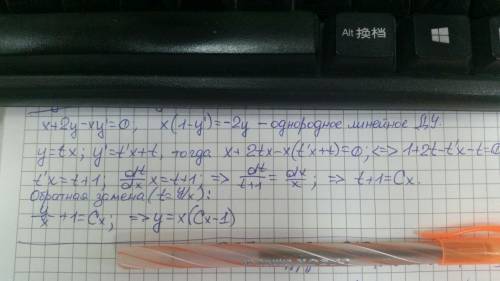 Alt 换档
x+2y-xy'=0, x(1-y')=-2y - однородное линейное ДУ.
y=tx; y'=t'x+t, тогда x+2tx-x(t'x+t)=0; <=> 1+2t-t'x-t=0
t'x=t+1; dt/dx x=t+1; => dt/t+1=dx/x; => t+1=Cx.
Обратная замена (t=y/x):
y/x+1=Cx; => y=x(Cx-1)